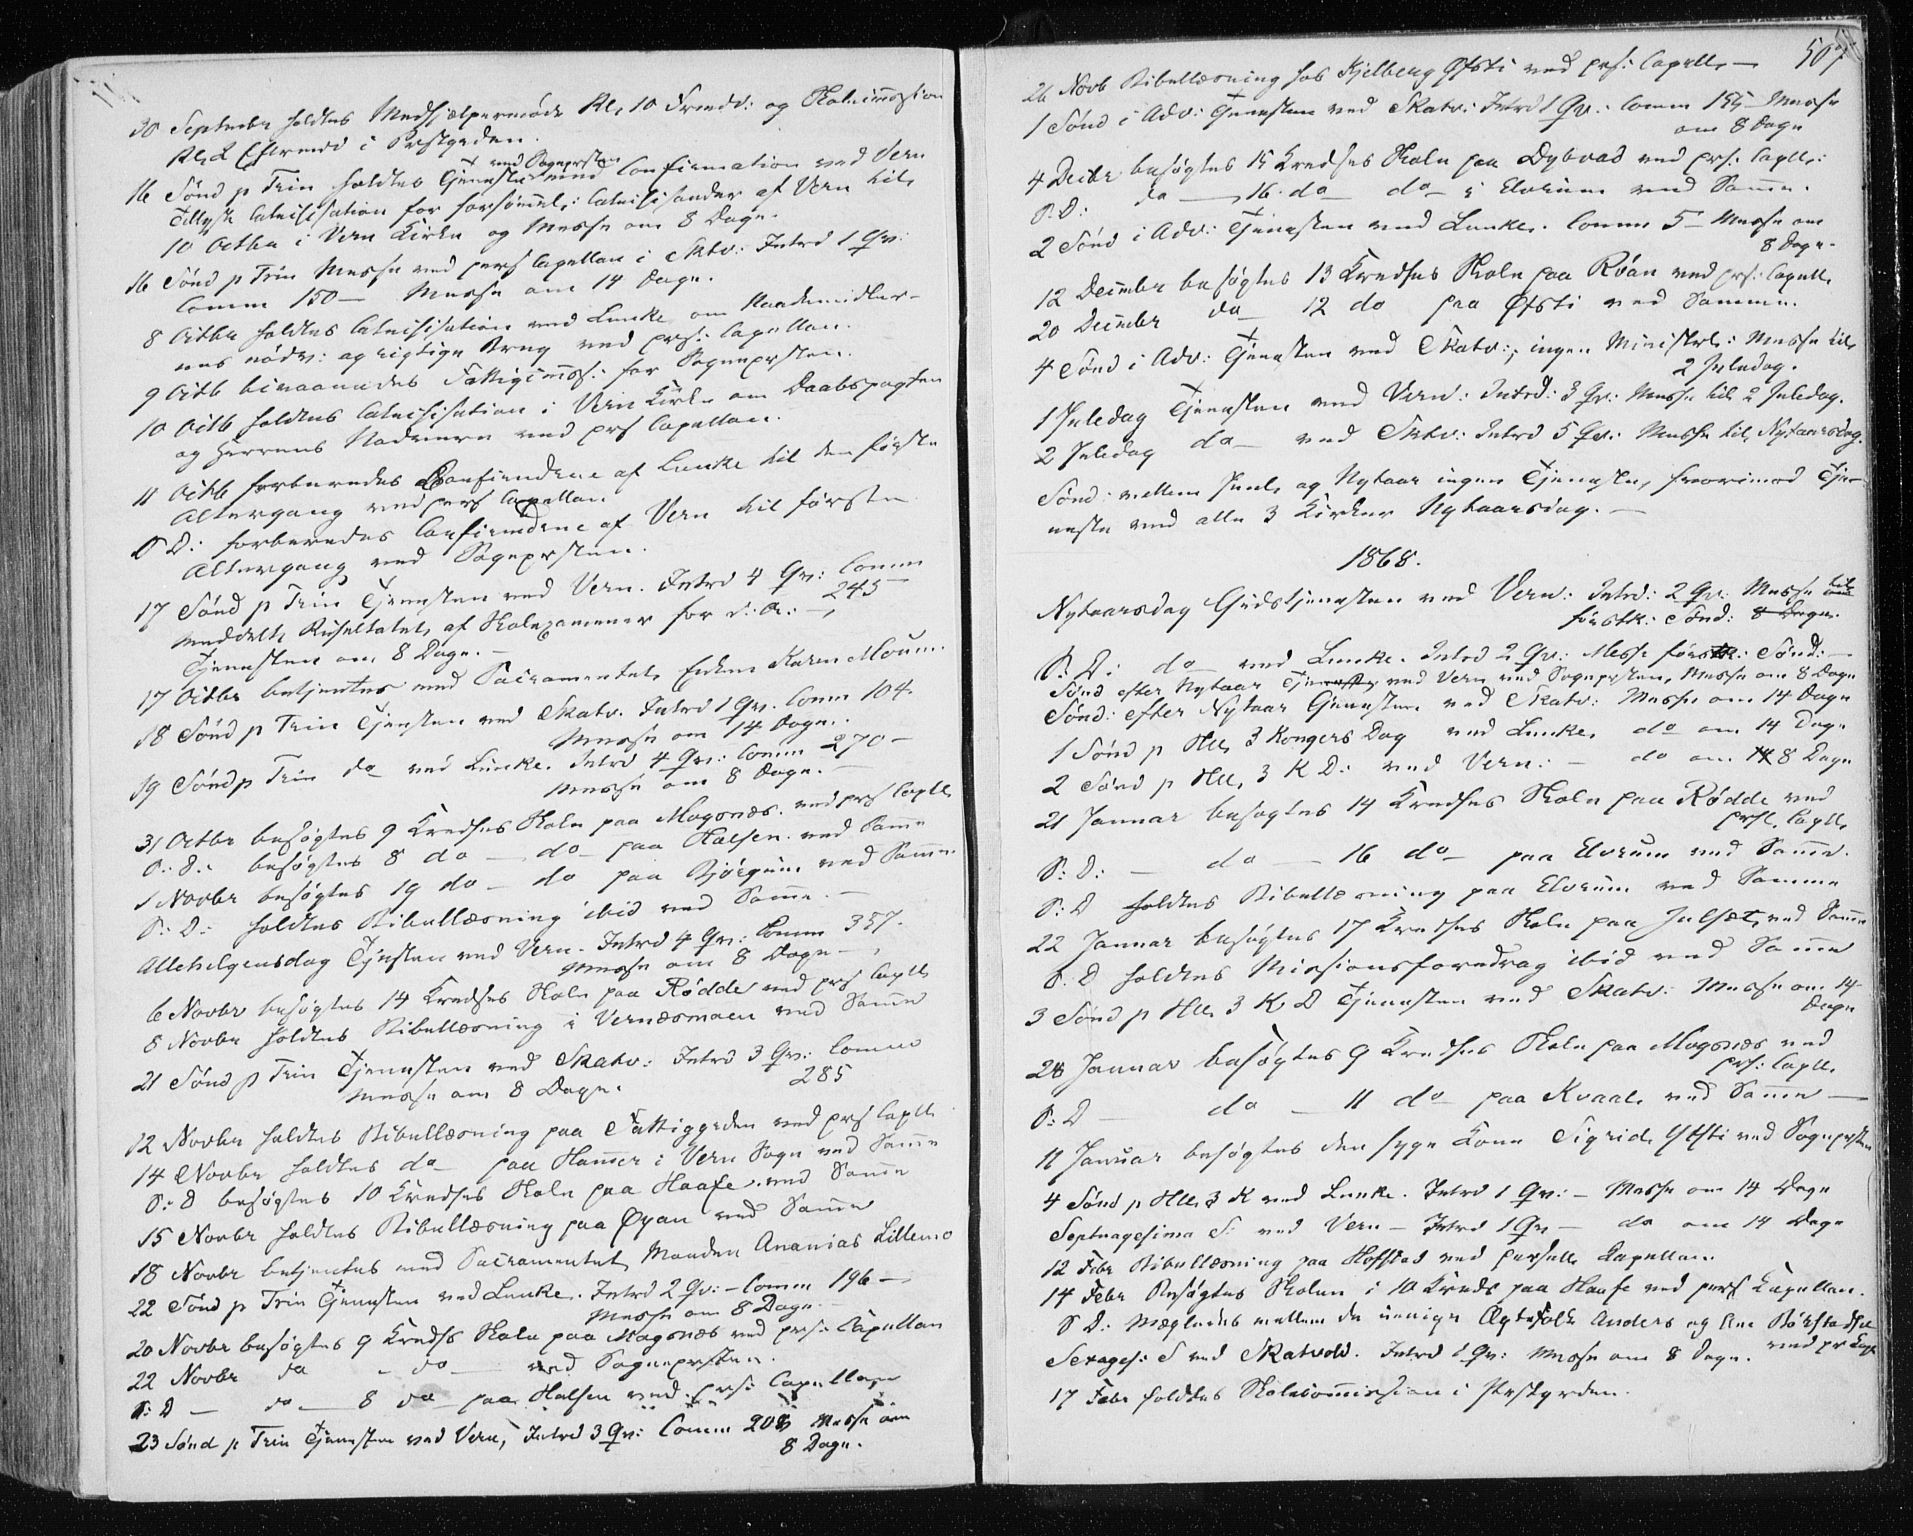 30 September holdtes Medhjælpermøde Kl. 10 Formdd: og Skolecommission
Kl. 2 Eftermd i Prstgrden.
16 Sønd p Trin holdtes Tjenesten ved Sogneprsten med Confirmation ved Vern
Tillyst Catechisation for forsømml: Catechisander af Vern til
10 Octbr i Vern Kirke og Messe om 8 Dage.
16 Sønd p Trin Messe ved pers Capellan i Sktv: Introd 1 Qv:
Comm 150 – Messe om 14 Dage.
8 Octbr holdtes Catechisation ved Lunke om Naademidler-
nes nødv: og rigtige Brug ved prs: Capellan.
9 Octb bivaanedes Fattigcomss: for Sogneprsten.
10 Octb holdtes Catechisation i Vern Kirke om Daabspagten
og Herrens Nadvere ved prs Capellan.
11 Octb forberedes Confirmdene af Lunke til den første
Altergang ved pers Capellan
S D: forberedes Confirmdene af Vern til første
Altergang ved Sogneprsten.
17 Sønd p Trin Tjenesten ved Vern. Introd 4 Qv: Comm
245 –
meddelt Resultatet af Skolexamener for d: A: –
Tjenesten om 8 Dage. –
17 Octbr betjentes med Sacramentet Enken Karen Moum.
18 Sønd p Trin Tjensten ved Skatv. Introd 1 Qv. Comm 104.
Messe om 14 Dage.
19 Sønd p Trin do ved Lunke. Introd 4 Qv: Comm 270 –
Messe om 8 Dage. –
31 Octbr besøgtes 9 Kredses Skole paa Mogsnæs. ved prs Capll
S: D: besøgtes 8 do – do – paa Halsen ved Samme
1 Novbr besøgtes 19 do – do paa Bjørgum ved Samme
S: D: holdtes Bibellæsning ibid ved Samme –
Allehelgensdag Tjnsten ved Vern. Introd 4 Qv: Comm 357.
Messe om 8 Dage –
6 Novbr besøgtes 14 Kredses Skole paa Rødde ved prs Capll
8 Novbr holdtes Bibellæsning i Vernæsmoen ved Samme
21 Sønd p Trin Tjenesten ved Skatv: Introd 3 Qv: Comm
285
Messe om 8 Dage.
12 Novbr holdtes Bibellæsning paa Fattiggrden ved prs Capll
14 Novbr holdtes do – paa Hammer i Vern Sogn ved Samme
S: D besøgtes 10 Kredses Skole paa Haafe ved Samme
15 Novbr holdtes Bibellæsning paa Øyan ved Samme
18 Novbr betjentes med Sacramentet Manden Ananias Lillemo
22 Sønd p Trin Tjenesten ved Lunke. Introd 2 Qv: – Comm 196 –
Messe om 8 Dage. –
20 Novbr besøgtes 9 Kreds Skole paa Mogsnæs ved prs: Capellan
22 Novbr do – do – ved Sogneprsten.
S: D – do – 8 do paa Halsen ved prs: Capellan
23 Sønd p Trin Tjenesten ved Vern, Introd 3 Qv: Comm 208 Messe om
8 Dage.
507
26 Novb Bibellæsning hos Kjelberg Øfsti ved prs: Capell. –
1 Sønd i Adv: Tjenesten ved Skatv: Introd 1 Qv: Comm 155 – Messe
om 8 Dage
4 Decbr besøgtes 15 Kredses Skole paa Dybvad ved prs: Capll:
S: D: do – 16 do – do – i Elvrum ved Samme.
2 Sønd i Adv: Tjenesten ved Lunke. Comm 5 – Messe om
8 Dage.
12 December besøgtes 13 Kredses Skole paa Røan ved prs: Capell
20 December do – 12 do paa Øfsti ved Samme.
4 Sønd i Adv: Tjenesten ved Skatv:, ingen Ministrl: Messe til
2 Juledag.
1 Juledag Tjenesten ved Vern: Introd: 3 Qv: Messe til 2 Juledag.
2 Juledag do – ved Sktv: Introd 5 Qv: Messe til Nytaarsdag.
Sønd: mellem Juul og Nytaar ingen Tjeneste, hvorimod Tje-
neste ved alle 3 Kirker Nytaarsdag. –
1868.
Nytaarsdag Gudstjenesten ved Vern: Introd: 2 Qv: Messe til
førstk: Sønd: 8 Dage.
S: D: do – ved Lunke. Introd 2 Qv: Messe førstk: Sønd: –
Sønd efter Nytaar Tjenesten ved Vern ved Sogneprsten, Messe om 8 Dage
Sønd: efter Nytaar Tjenesten ved Skatv: Messe om 14 Dage
1 Sønd p Hll 3 Kongers Dag ved Lunke do om 14 Dage
2 Sønd p Hll 3 K D: ved Vern: – do om 8 Dage
21 Januar besøgtes 14 Kredses Skole paa Rødde ved
prs. Capll.
S: D: – do – 16 do – paa Elvrum ved Samme.
S: D holdtes Bibellæsning paa Elvrum ved Samme
22 Januar besøgtes 17 Kredses Skole paa Julset ved Samme
S: D holdtes Missionsforedrag ibid ved Samme
3 Sønd p Hll 3 K D Tjenesten ved Skatv: Messe om 14
Dage
28 Januar besøgtes 9 Kredses Skole paa Mogsnæs ved
prs: Capll.
S: D – do – 11 do – paa Kvaal ved Samme –
11 Januar besøgtes den syge Kone Sigrid Yststi ved Sogneprsten
4 Sønd p Hll 3 K ved Lunke. Introd 1 Qv: – Messe om 14 Dage
Septuagesima S: ved Vern – Introd 1 Qv – do om 14 Dage
12 Febr Bibellæsning paa Hofstad ved persll Capellan.
14 Febr Besøgtes Skolen i 10 Kreds paa Haafe ved pers Capellan.
S D: mægledes mellem de uenige Ægtefolk Anders og Ane Børstadhe
ved pr Cap
Sexages: S ved Skatvold. Introd 1 Qv: Messe om 8 Dage.
17 Febr holdtes Skolecommission i Prstgrden.